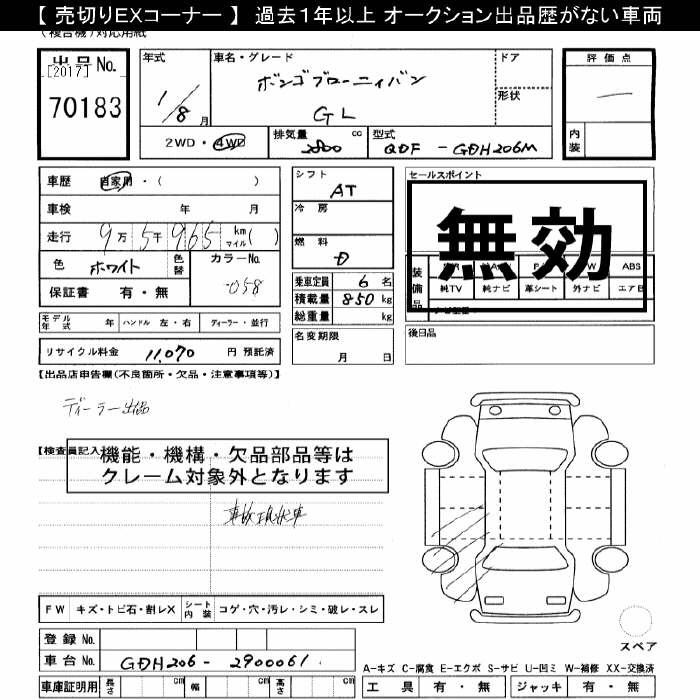 【 売切りEXコーナー 】 過去1年以上 オークション出品歴がない車両
(複合機)対応用紙
出品No.
[2017]
70183
年式
1/8月
車名・グレード
ボンゴブローニィバン
GL
ドア
形状
評価点
内装
2WD・4WD
排気量
2800 cc
型式
QDF - GDH206M
車歴 自家用・( )
車検 年 月
走行 9万5千965 km マイル( )
色 ホワイト 色替
カラーNo.
058
保証書 有・無
シフト
AT
冷房
燃料
D
乗車定員 6 名
積載量 850 kg
総重量 kg
セールスポイント
無効
装備品
ABS
純TV 純ナビ 革シート 外ナビ エアB
モデル年式 年 ハンドル 左・右 ディーラー・並行
リサイクル料金 11,070 円 預託済
名変期限
月 日
後日品
【出品店申告欄(不良箇所・欠品・注意事項等)】
ディーラー出品
【検査員記入
機能・機構・欠品部品等は
クレーム対象外となります
事故現状車
FW キズ・トビ石・割レX シート内装 コゲ・穴・汚レ・シミ・破レ・スレ
登録 No.
車台 No. GDH206 - 2900061
車庫証明用 長さ cm 幅 cm 高さ cm
スペア
A-キズ C-腐食 E-エクボ S-サビ U-凹ミ W-補修 XX-交換済
工具 有・無 ジャッキ 有・無